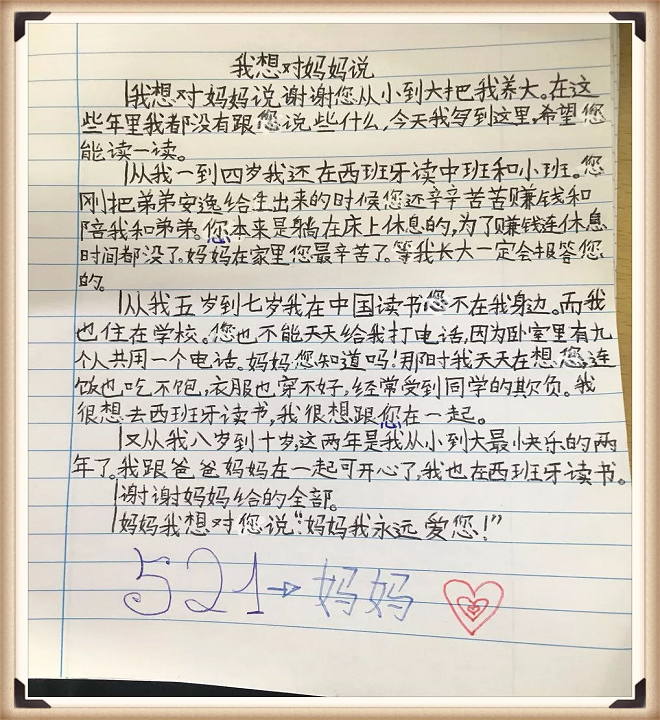 我想对妈妈说
我想对妈妈说谢谢您从小到大把我养大。在这
些年里我都没有跟您说些什么,今天我写到这里,希望您
能读一读。
从我一到四岁我还在西班牙读中班和小班。您
刚把弟弟安逸给生出来的时候您还辛辛苦苦赚钱和
陪我和弟弟。您本来是躺在床上休息的,为了赚钱连休息
时间都没了。妈妈在家里您最辛苦了。等我长大一定会报答您
的。
从我五岁到七岁我在中国读书您不在我身边。而我
也住在学校。您也不能天天给我打电话,因为卧室里有九
个人共用一个电话。妈妈您知道吗!那时我天天在想您,连
饭也吃不饱,衣服也穿不好,经常受到同学的欺负。我
很想去西班牙读书,我很想跟您在一起。
又从我八岁到十岁,这两年是我从小到大最快乐的两
年了。我跟爸爸妈妈在一起可开心了,我也在西班牙读书。
谢谢妈妈给的全部。
妈妈我想对您说“妈妈我永远爱您!”
521→妈妈